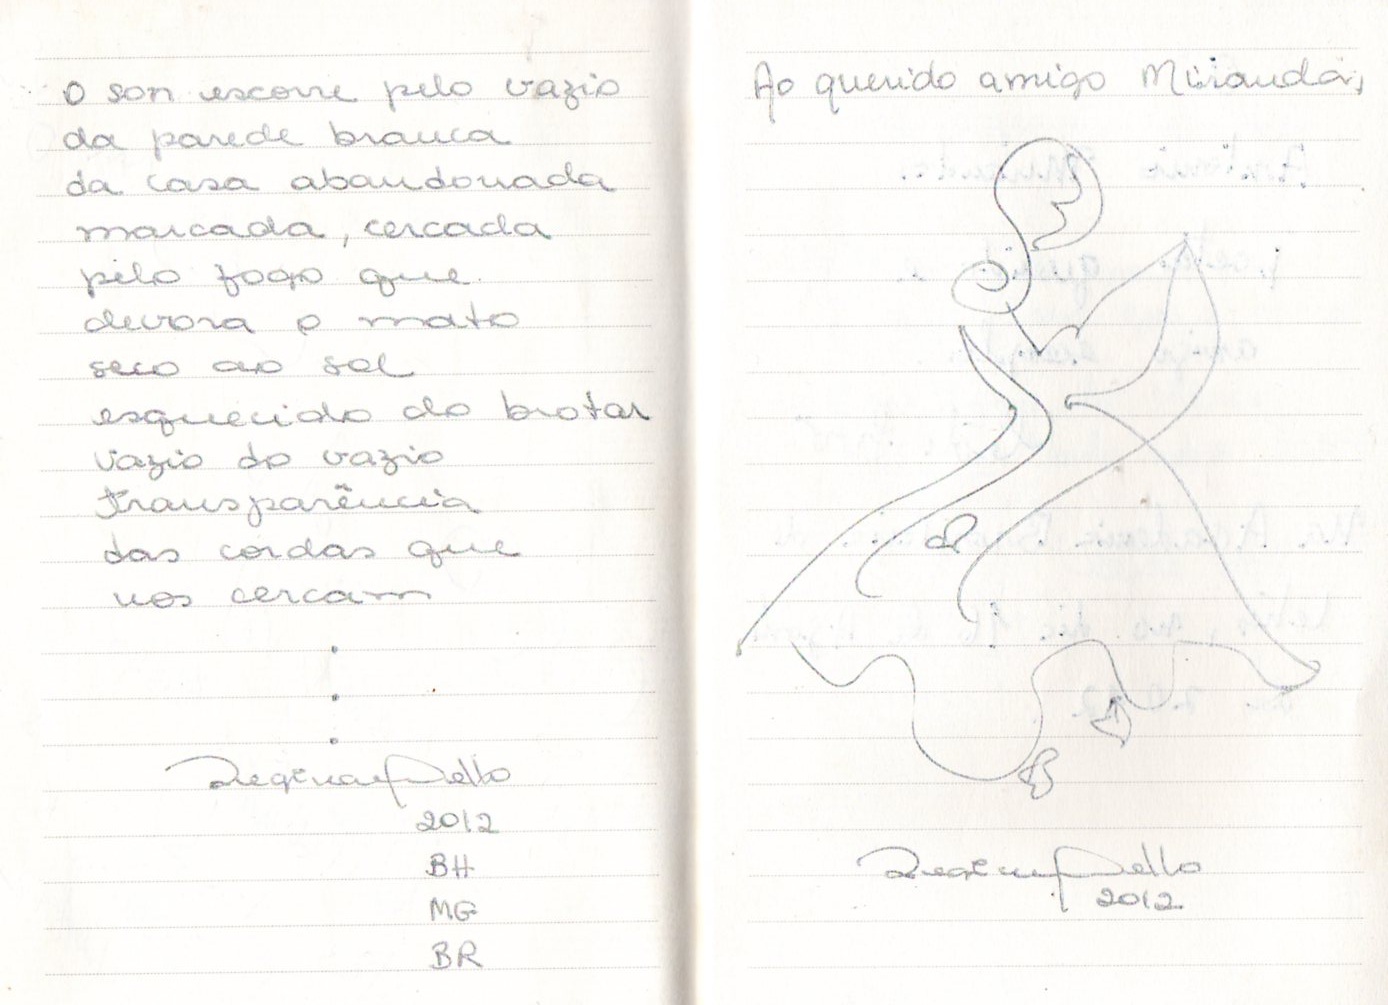 O som escorre pelo vazio
da parede branca
da casa abandonada
marcada, cercada
pelo fogo que
devora o mato
seco ao sol
esquecido do brotar
vazio do vazio
transparência
das cordas que
nos cercam
.
.
.
Regina Mello
2012
BH
MG
BR
Ao querido amigo Miranda,
Regina Mello
2012